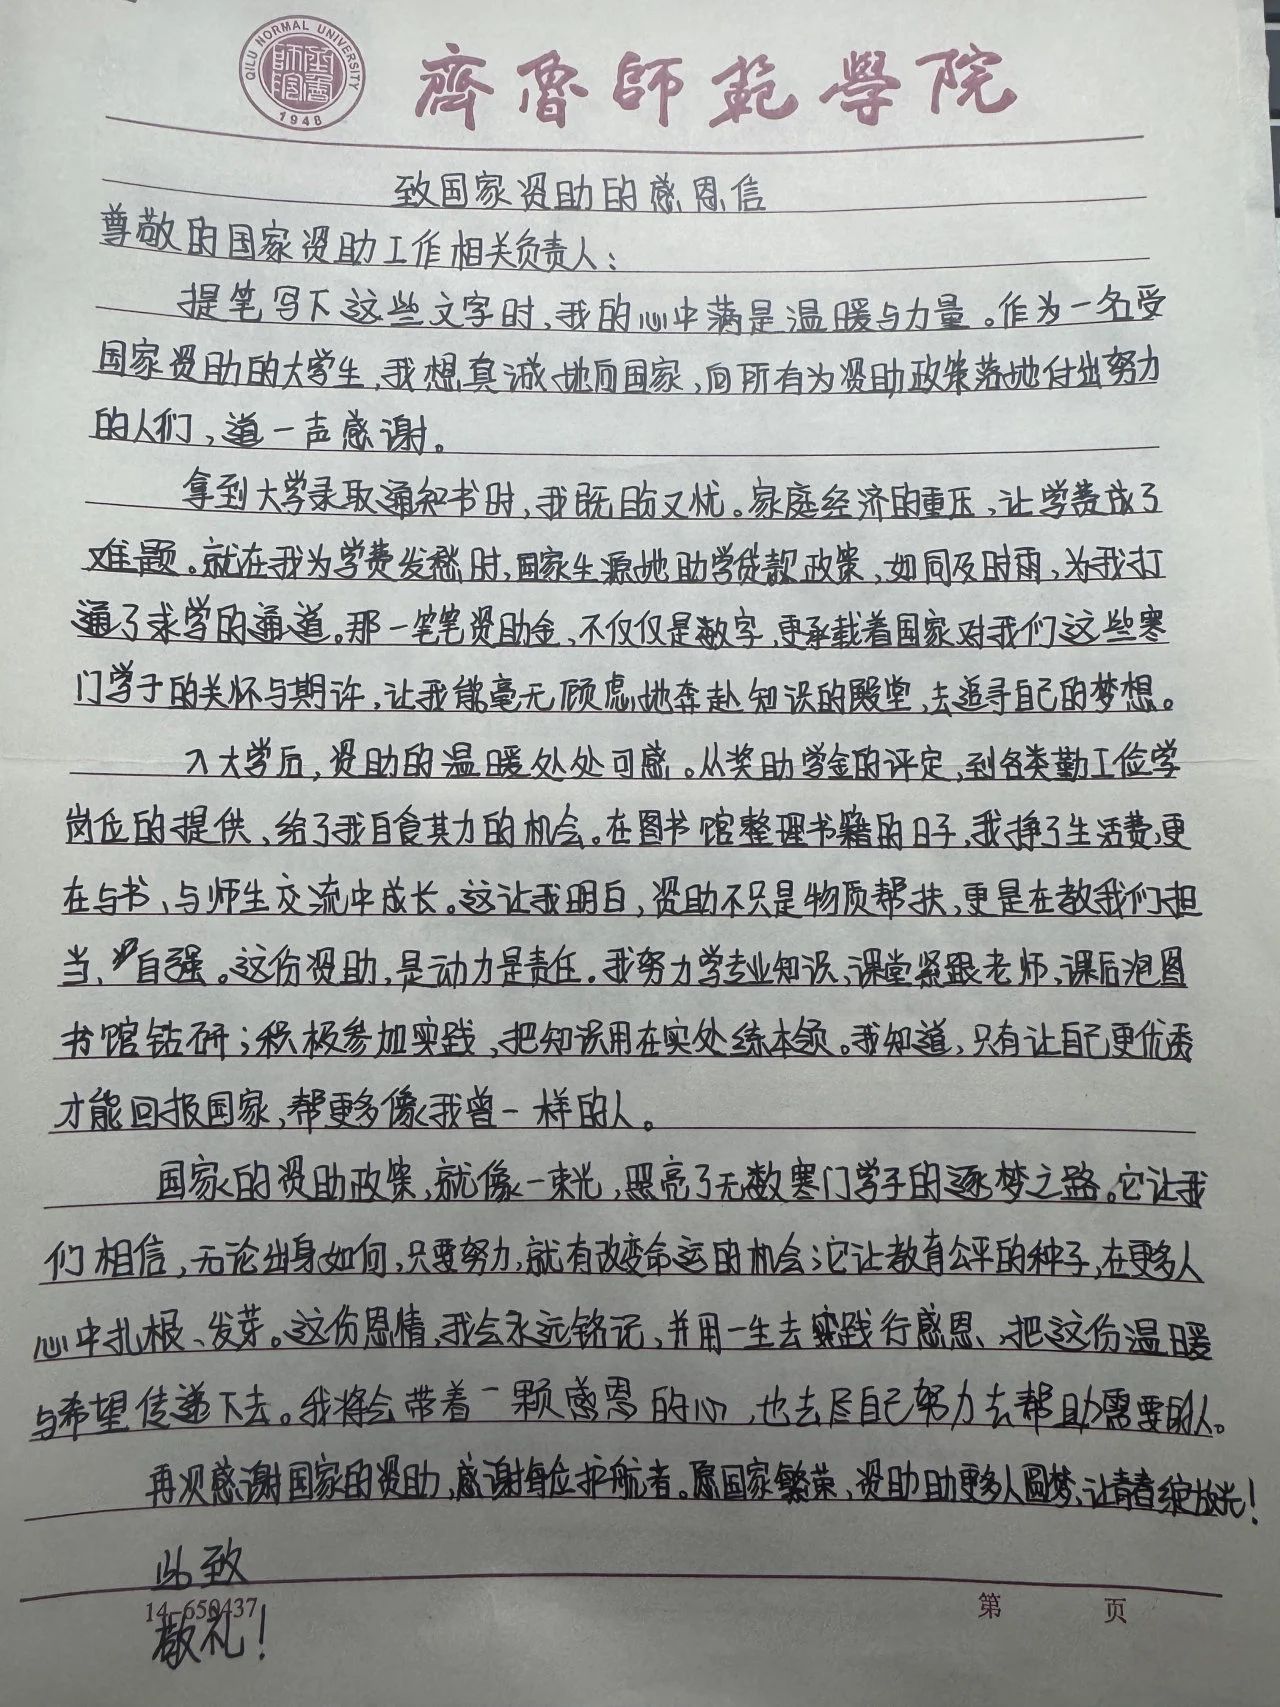 QILU NORMAL UNIVERSITY
1948
齊魯師範學院
致国家资助的感恩信
尊敬的国家资助工作相关负责人：
提笔写下这些文字时，我的心中满是温暖与力量。作为一名受
国家资助的大学生，我想真诚地向国家，向所有为资助政策落地付出努力
的人们，道一声感谢。
拿到大学录取通知书时，我既又忧。家庭经济的重压，让学费成了
难题。就在我为学费发愁时，国家生源地助学贷款政策，如同及时雨，为我打
通了求学的通道。那一笔笔资助金，不仅仅是数字，更承载着国家对我们这些寒
门学子的关怀与期许，让我能毫无顾虑地奔赴知识的殿堂，去追寻自己的梦想。
入大学后，资助的温暖处处可感。从奖助学金的评定，到各类勤工位学
岗位的提供，给了我自食其力的机会。在图书馆整理书籍的日子，我挣了生活费，更
在与书、与师生交流中成长。这让我明白，资助不只是物质帮扶，更是在教我们担
当、自强。这份资助，是动力是责任。我努力学专业知识，课堂紧跟老师，课后泡图
书馆钻研；积极参加实践，把知识用在实处练本领。我知道，只有让自己更优秀
才能回报国家，帮更多像我曾一样的人。
国家的资助政策，就像一束光，照亮了无数寒门学子的逐梦之路。它让我
们相信，无论出身如何，只要努力，就有改变命运的机会；它让教育公平的种子，在更多人
心中扎根、发芽。这份恩情，我会永远铭记，并用一生去实践行感恩、把这份温暖
与希望传递下去。我将会带着一颗感恩的心，也去尽自己努力去帮助需要的人。
再次感谢国家的资助，感谢每位护航者。愿国家繁荣，资助助更多人圆梦，让青春绽放光！
此致
14-650437
第 页
敬礼！